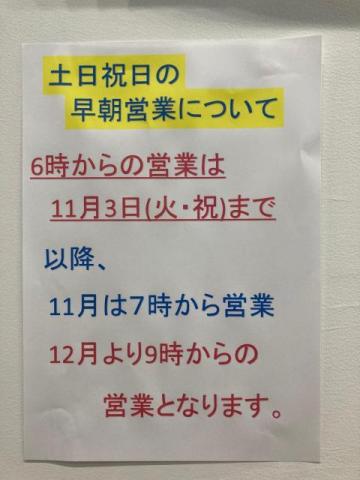 土日祝日の
早朝営業について
6時からの営業は
11月3日(火・祝)まで
以降、
11月は7時から営業
12月より9時からの
営業となります。